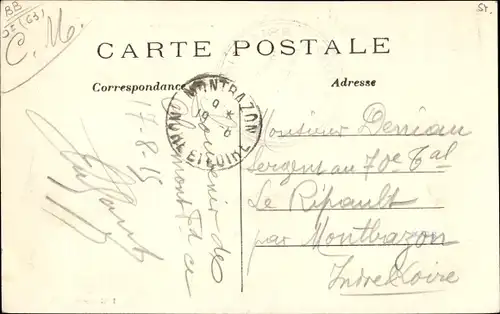 BB
(63)
C. M.
54
CARTE POSTALE
Correspondance
Adresse
MONTBAZON
INDRE ET LOIRE
17-8-15
Souvenir de
Clermont-Fd
Monsieur Deniau
Sergent au 70e Tal
Le Ripault
par Montbazon
Indre & Loire